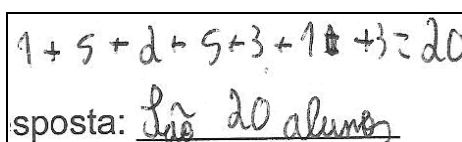 1 + 5 + 2 + 5 + 3 + 1 + 3 = 20
sposta: São 20 alunos